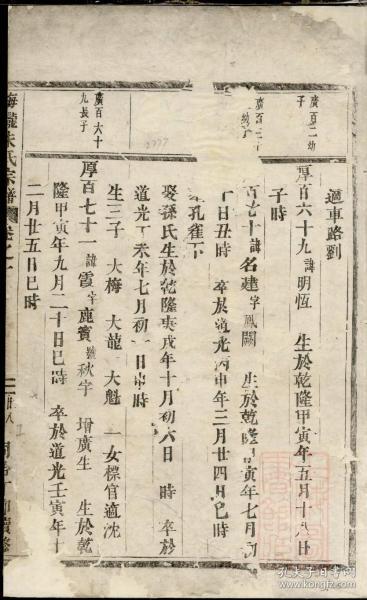 適車路劉
廣百二幼
子
厚百六十九諱明恆 生於乾隆甲寅年五月十八日
子時
百七十諱名建字鳳闕 生於乾隆甲寅年七月初
十日丑時 卒於道光丙申年三月廿四日巳時
孔雀下
娶孫氏生於乾隆庚戌年十月初六日 時 卒於
道光丁未年七月初一日 時
生三子 大梅 大龍 大魁 一女標官適沈
廣百六十
九長子
厚百七十一諱霞字鹿賓號秋宇 增廣生 生於乾
隆甲寅年九月二十日巳時 卒於道光壬寅年十
二月廿五日巳時
朱氏宗譜
廿八
孔夫子旧书网